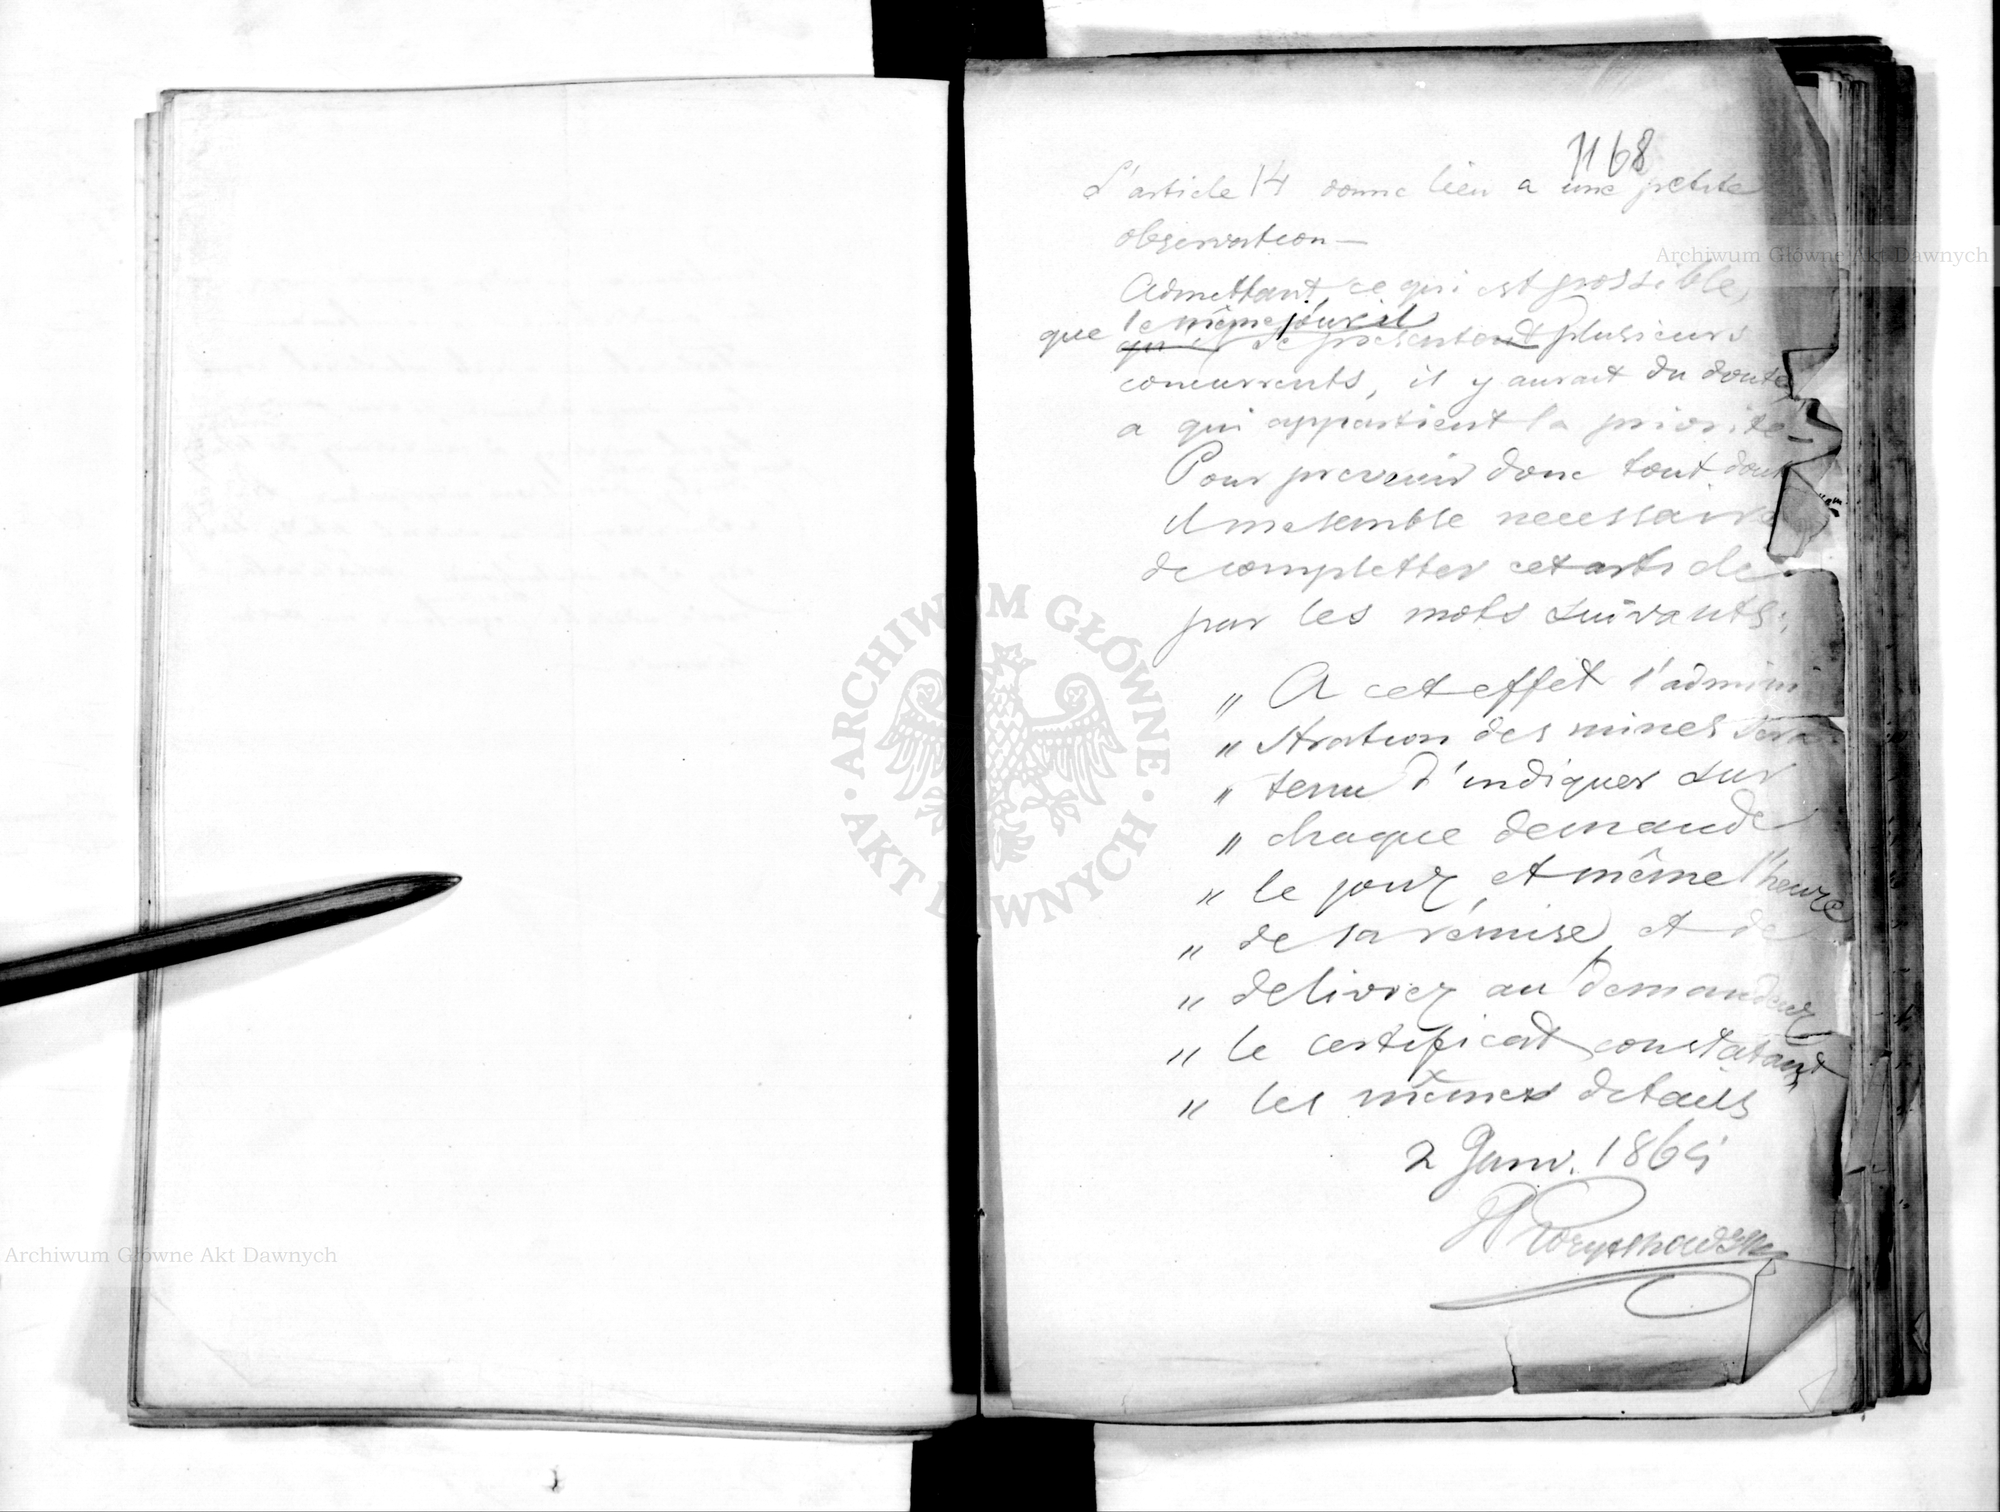 1168
L'article 14 donne lieu a une petite
observation —
Admettant, ce qui est possible,
le même jour il
que qu'il se présentent plusieurs
concurrents, il y aurait du doute
a qui appartient la priorité —
Pour prevenir donc tout dout
il me semble necessaire
de completter cet article
par les mots suivants:
„ A cet effet l'admini
„ stration des mines sera
„ tenu d'indiquer sur
„ chaque demande
„ le jour et même l'heure
„ de sa rémise, et de
„ delivrer au demandeur
„ le certificat constatant
„ les mêmes details
2 Janv. 186
Archiwum Główne Akt Dawnych
Archiwum Główne Akt Dawnych
ARCHIWUM GŁÓWNE
· AKT DAWNYCH ·